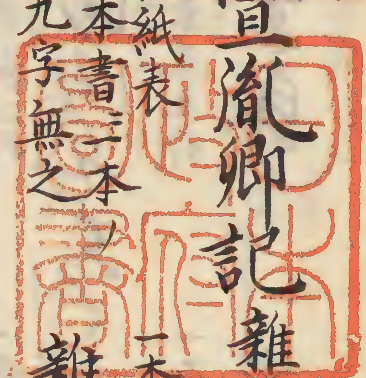 宣胤卿記 雜
紙表 一本
本書三本ノ
九字無之 雜